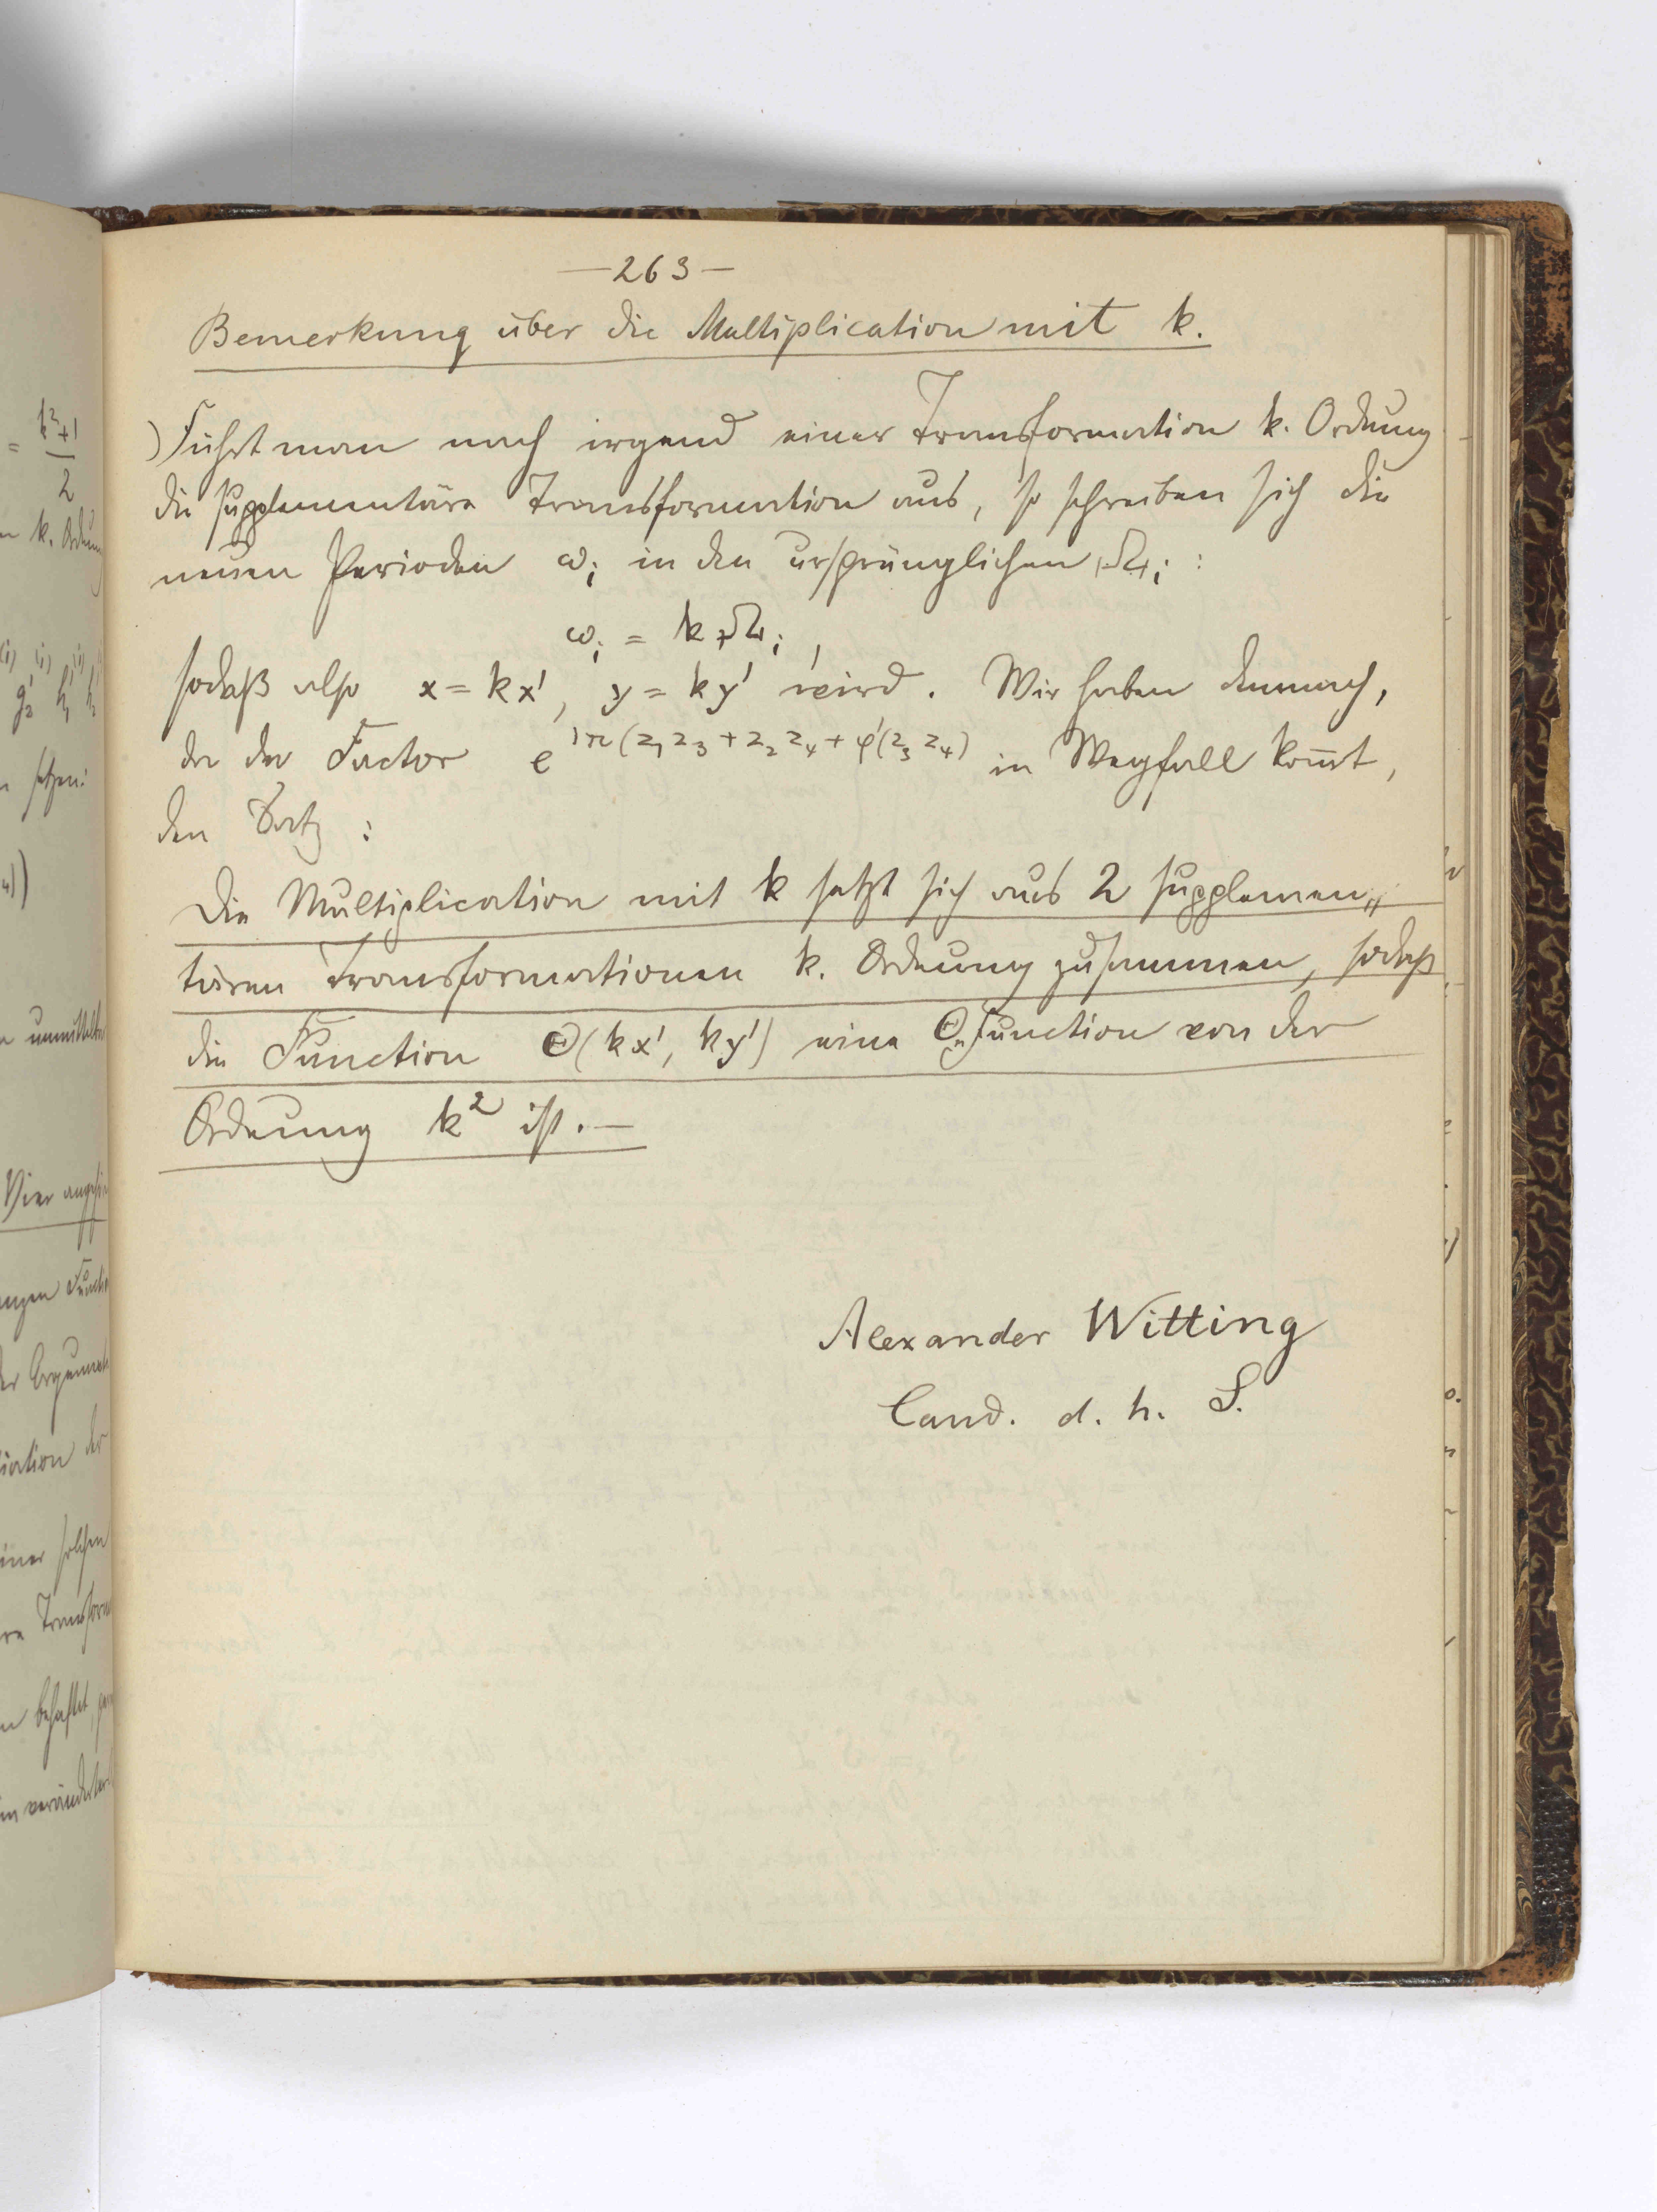 —263—
Bemerkung über die Multiplication mit k.
Führt man nach irgend einer Transformation k. Ordnung
die supplementäre Transformation aus, so schreiben sich die
neuen Perioden ω_i in den ursprünglichen Ω_i :
ω_i = k Ω_i ,
sodaß also x = kx', y = ky' wird. Wir haben demnach,
da der Factor e^{iπ(z_1 z_3 + z_2 z_4 + φ'(z_3 z_4)} in Wegfall kom̅t,
den Satz :
Die Multiplication mit k setzt sich aus 2 supplemen„
tären Transformationen k. Ordnung zusammen, sodaß
die Function Θ(kx', ky') eine Θ„Function von der
Ordnung k² ist. —
Alexander Witting
Cand. d. h. S.
= k²+1
2
k. Ordnung
setzen:
unmittelba
Hier
Function
der Argumente
der
einer solchen
Transform
behaftet,